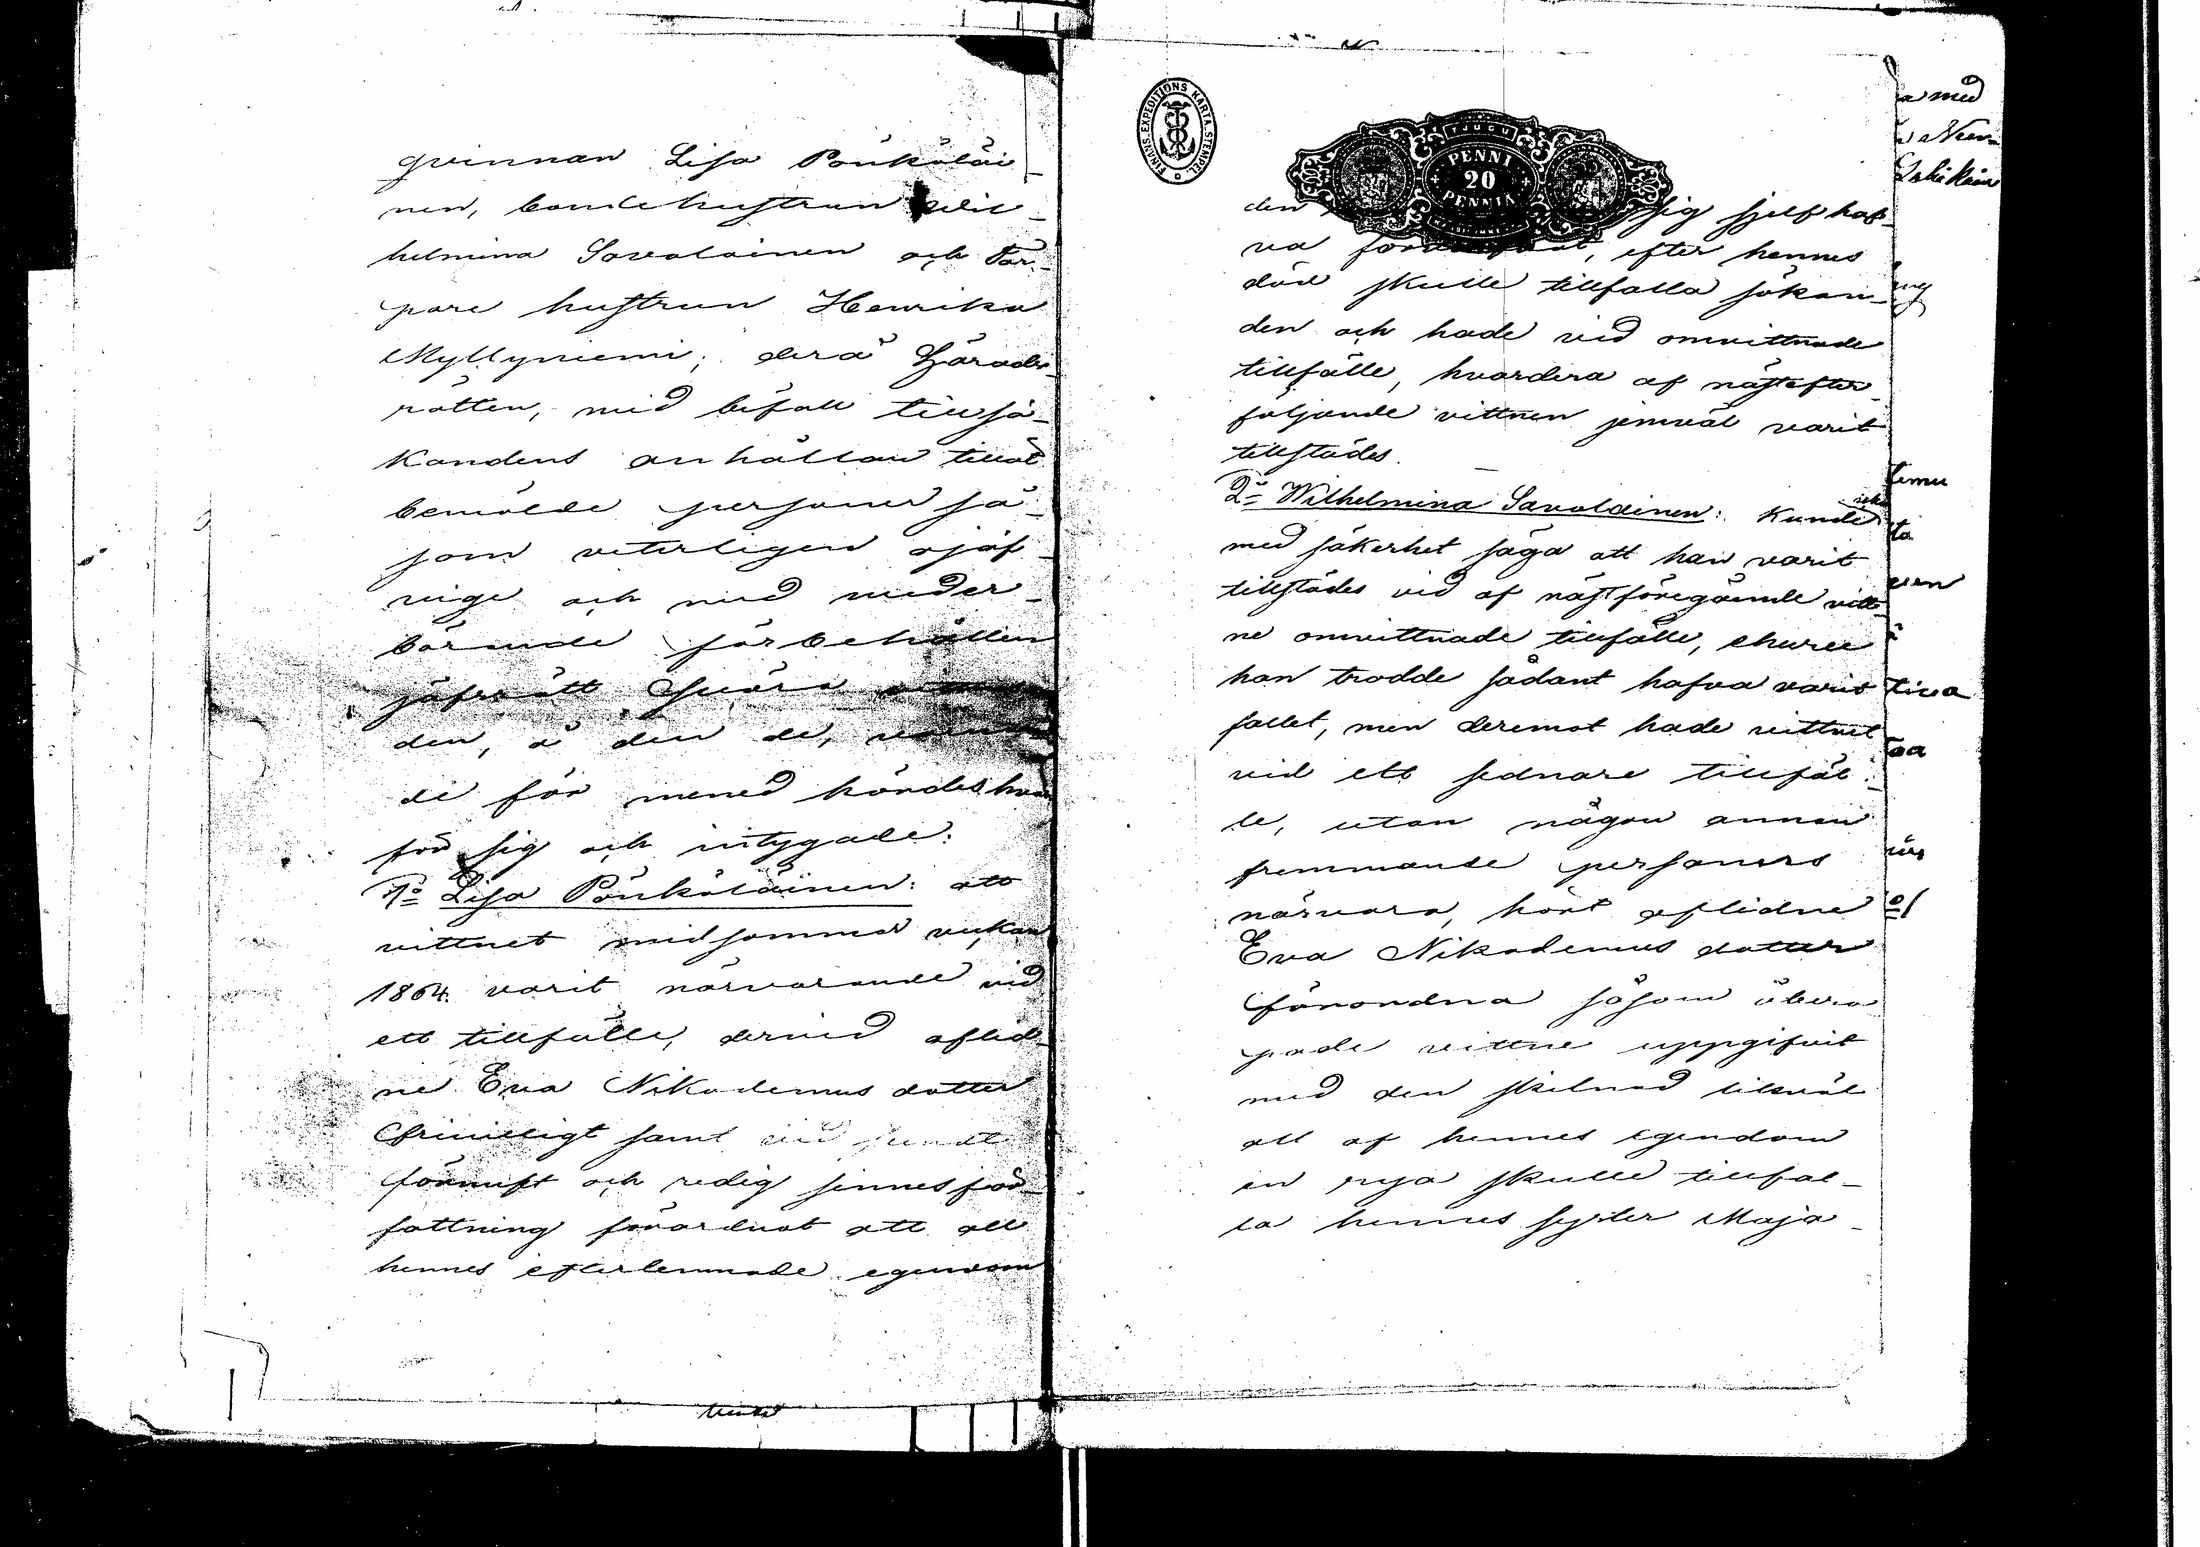 qvinnan Lisa Pönkäläi
nen, bondehustrun Wil-
helmina Savolainen och Tor-
pare hustrun Henrika
Myllyniemi; derå Härads-
rätten, med bifall till sö-
kandens anhållan tillät
bemälde personer så-
som veterligen ojäf-
vige och med veder-
börande förbehållen
jäfsrätt svära
den, å den de,
de för mened hördes hvar
för sig och intygade:
1o Lisa Pönkäläinen: att
vittnet midsommar veckan
1864. varit närvarande vid
ett tillfälle, dervid aflid-
ne Eva Nikodemus dotter
frivilligt samt vid sundt
förnuft och redig sinnesför-
fattning förordnat att all
hennes efterlemnade egendom
Vidi
FINANS. EXPEDITIONS KARTA. STEMPEL
TJUGU
PENNI
20
PENNIÄ
den sig sjelf haf-
va , efter hennes
död skulle tillfalla sökan-
den och hade vid omvittnade
tillfälle, hvardera af näst efter
följande vittnen jemväl varit
tillstädes.
2o Wilhelmina Savolainen: kunde icke
med säkerhet säga att han varit
tillstädes vid af näst föregående vitt-
ne omvittnade tillfälle, ehuru
han trodde sådant hafva varit
fallet, men deremot hade vittnet
vid ett sednare tillfäl-
le, utan någon annan
fremmande persons
närvaro, hört aflidne
Eva Nikodemus dotter
förordna såsom åbero
pade vittne uppgifvit
med den skilnad likväl
att af hennes egendom
en rya skulle tillfal-
la hennes syster Maja
a med